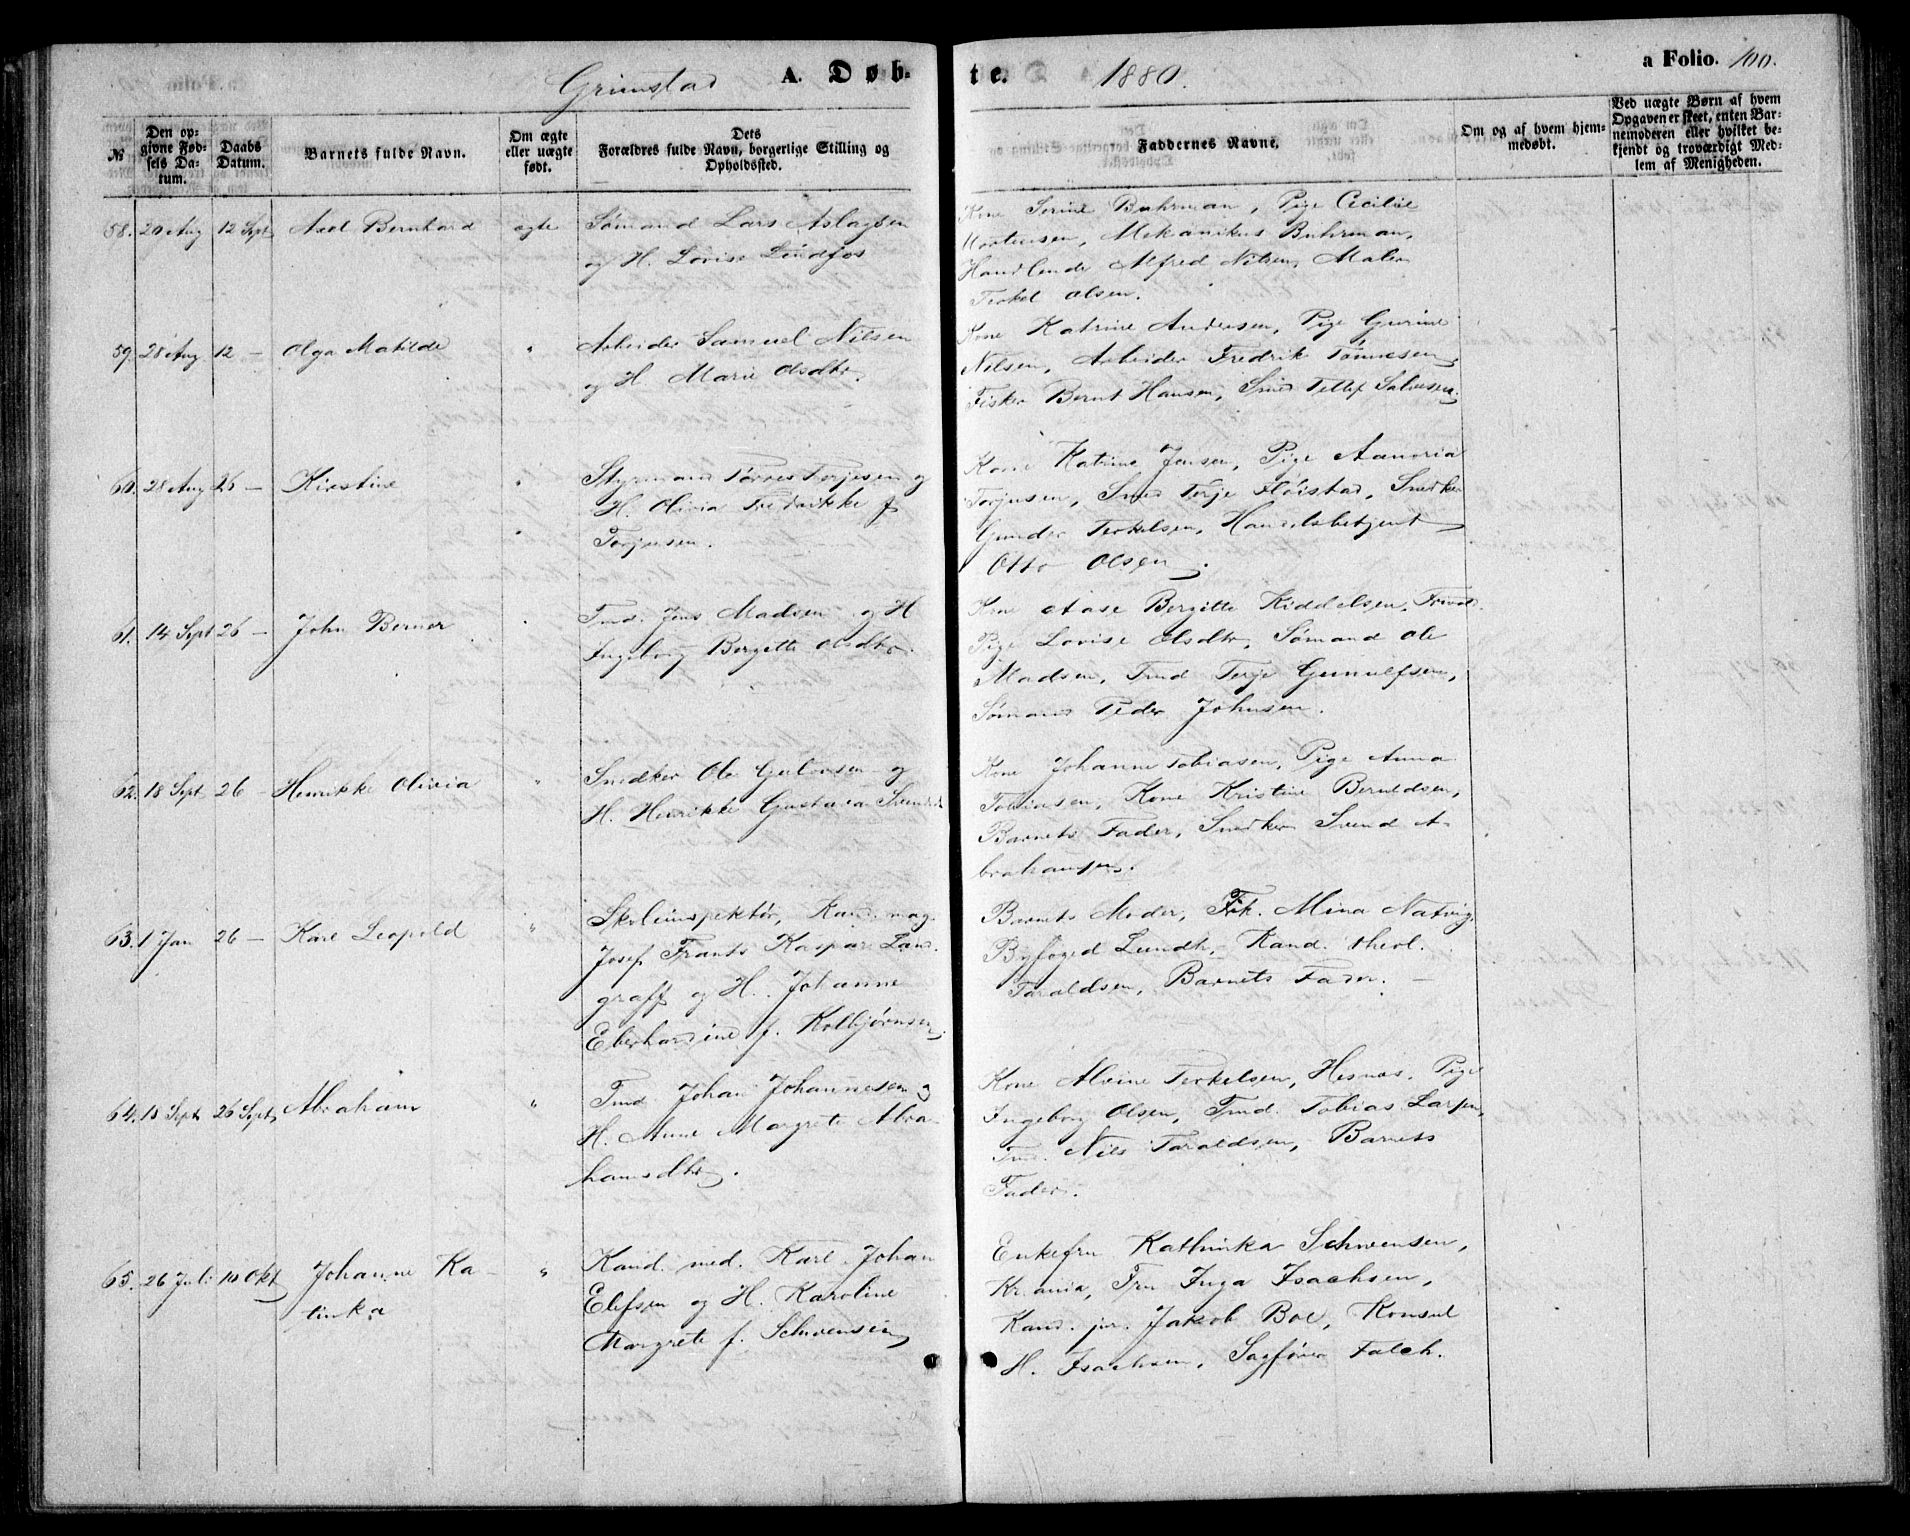 Grimstad A. Døb-
te. 1880. a Folio. 100.
№
Den opgivne Fødsels Datum.
Daabs Datum.
Barnets fulde Navn.
Om ægte eller uægte født.
Dets Forældres fulde Navn, borgerlige Stilling og Opholdssted.
Faddernes Navne.
Om og af hvem hjemmedøbt.
Ved uægte Børn af hvem Opgaven er skeet, enten Barnemoderen eller hvilket bekjendt og troværdigt Medlem af Menigheden.
58. 20 Aug 12 Sept Axel Bernhard ægte
Sømand Lars Aslagsen
og H. Lovise Lindfos
Kone Sorine Buhrman, Pige Cecilie
Mortensen, Mekanikus Buhrman,
Handlende Alfred Nilsen, Maler
Terkel Olsen.
59. 28 Aug 12 — Olga Matilde "
Arbeider Samuel Nilsen
og H. Marie Olsdtr.
Kone Katrine Andersen, Pige Gurine
Nilsen, Arbeider Fredrik Tønnesen,
Fisker Bernt Hansen, Smed Tellef Salvesen.
60. 28 Aug 26 — Kirstine "
Styrmand Torres Torjesen og
H. Olivia Fredrikke f.
Torjusen.
Kone Katrine Jensen, Pige Aanoria
Torjusen, Smed Terje Fløistad, Snedker
Gunder Terkelsen, Handelsbetjent
Otto Olsen.
61. 14 Sept 26 — John Berner "
Tmd. Jens Madsen og H
Ingeborg Bergitte Olsdtr.
Kone Aase Bergitte Kiddelsen,
Pige Lovise Olsdtr, Sømand Ole
Madsen, Tmd Terje Gunnulfsen,
Sømand Peder Johnsen.
62. 18 Sept 26 — Henrikke Olivia "
Snedker Ole Gulovsen og
H. Henrikke Gustava Svends
Kone Johanne Tobiasen, Pige Anna
Tobiasen, Kone Kristine Berntdsen,
Barnets Fader, Snedker Svend A-
brahamsen.
63. 1 Jan 26 — Karl Leopold "
Skoleinspektør, Kand. mag.
Josef Frants Kaspar Lan-
graff og H. Johanne
Eberhardine f. Kolbjørnsen
Barnets Moder, Frk. Mina Natvig,
Byfoged Lundh, Kand. theol.
Taraldsen, Barnets Fader. —
64. 15 Sept 26 Sept, Abraham "
Tmd Johan Johannesen og
H. Anne Margrete Abra-
hamsdtr.
Kone Alvine Terkelsen, Hesnæs, Pige
Ingeborg Olsen, Tmd. Tobias Larsen,
Tmd. Nils Taraldsen, Barnets
Fader.
65. 26 Juli 10 Okt Johanne Ka- "
tinka
Kand. med. Karl Johan
Elefsen og H. Karoline
Margrete f. Schwensen
Enkefru Kathinka Schwensen,
Kr.ania, Fru Inga Isachsen,
Kand. jur. Jakob Boe, Konsul
H. Isachsen, Sagfører Falch.